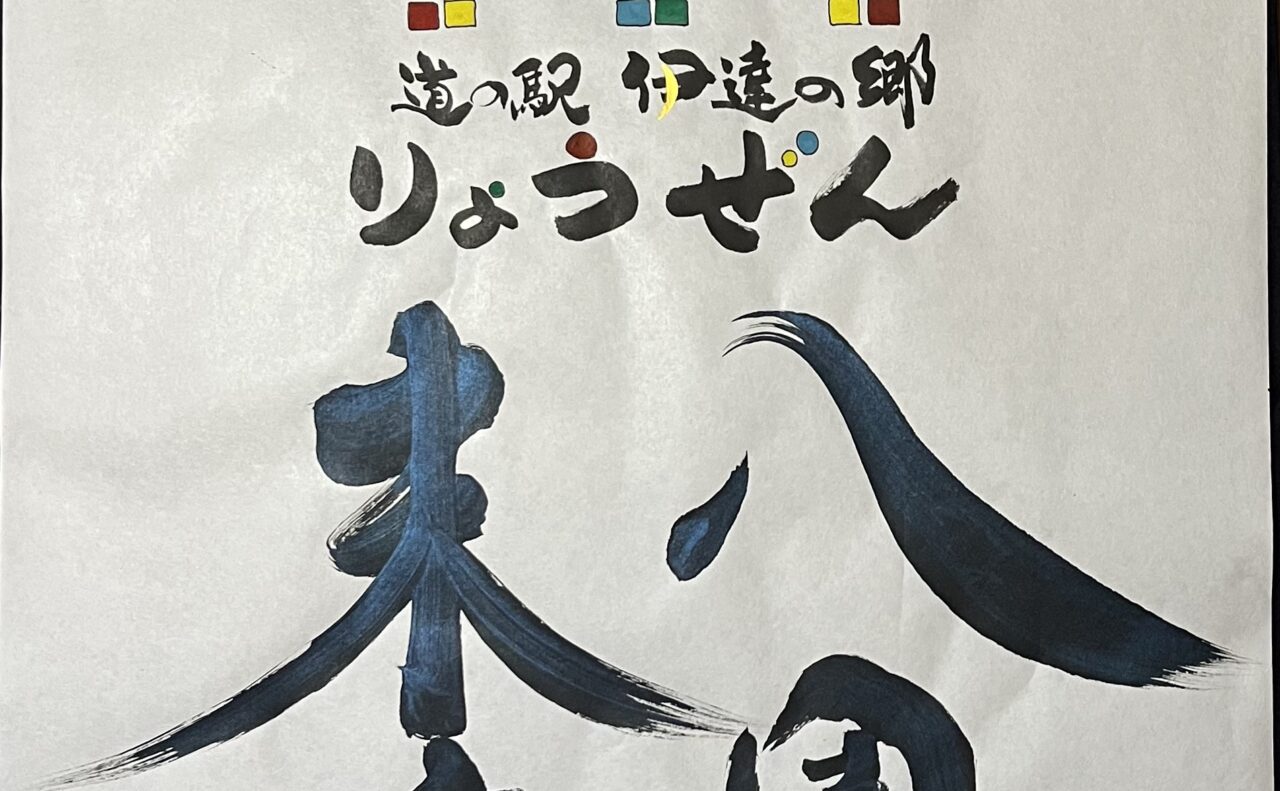 道の駅 伊達の郷
りょうぜん
八
末